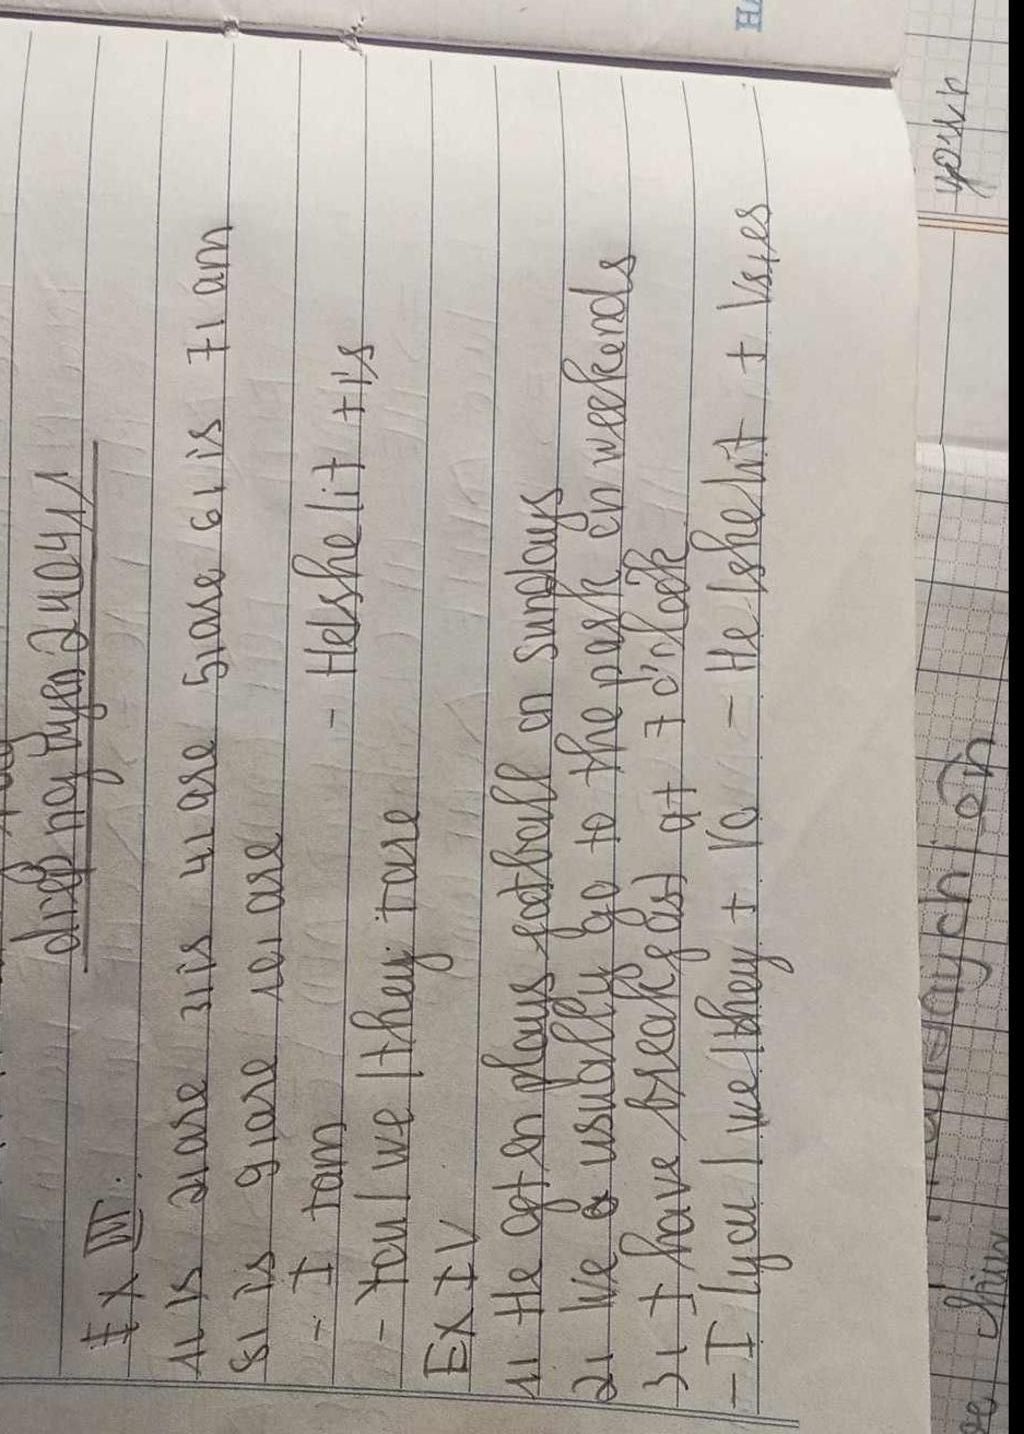 Ex III.
1, is 2, are 3, is 4, are 5, are 6, is 7, am
8, is 9, are 10, are
- I + am - He/she/it + is
- You / we / they + are
Ex IV
1, He often plays football on sundays
2, We usually go to the park on weekends
3, I have breakfast at 7 o'clock
- I / you / we / they + Vo - He / she / it + Vs, es